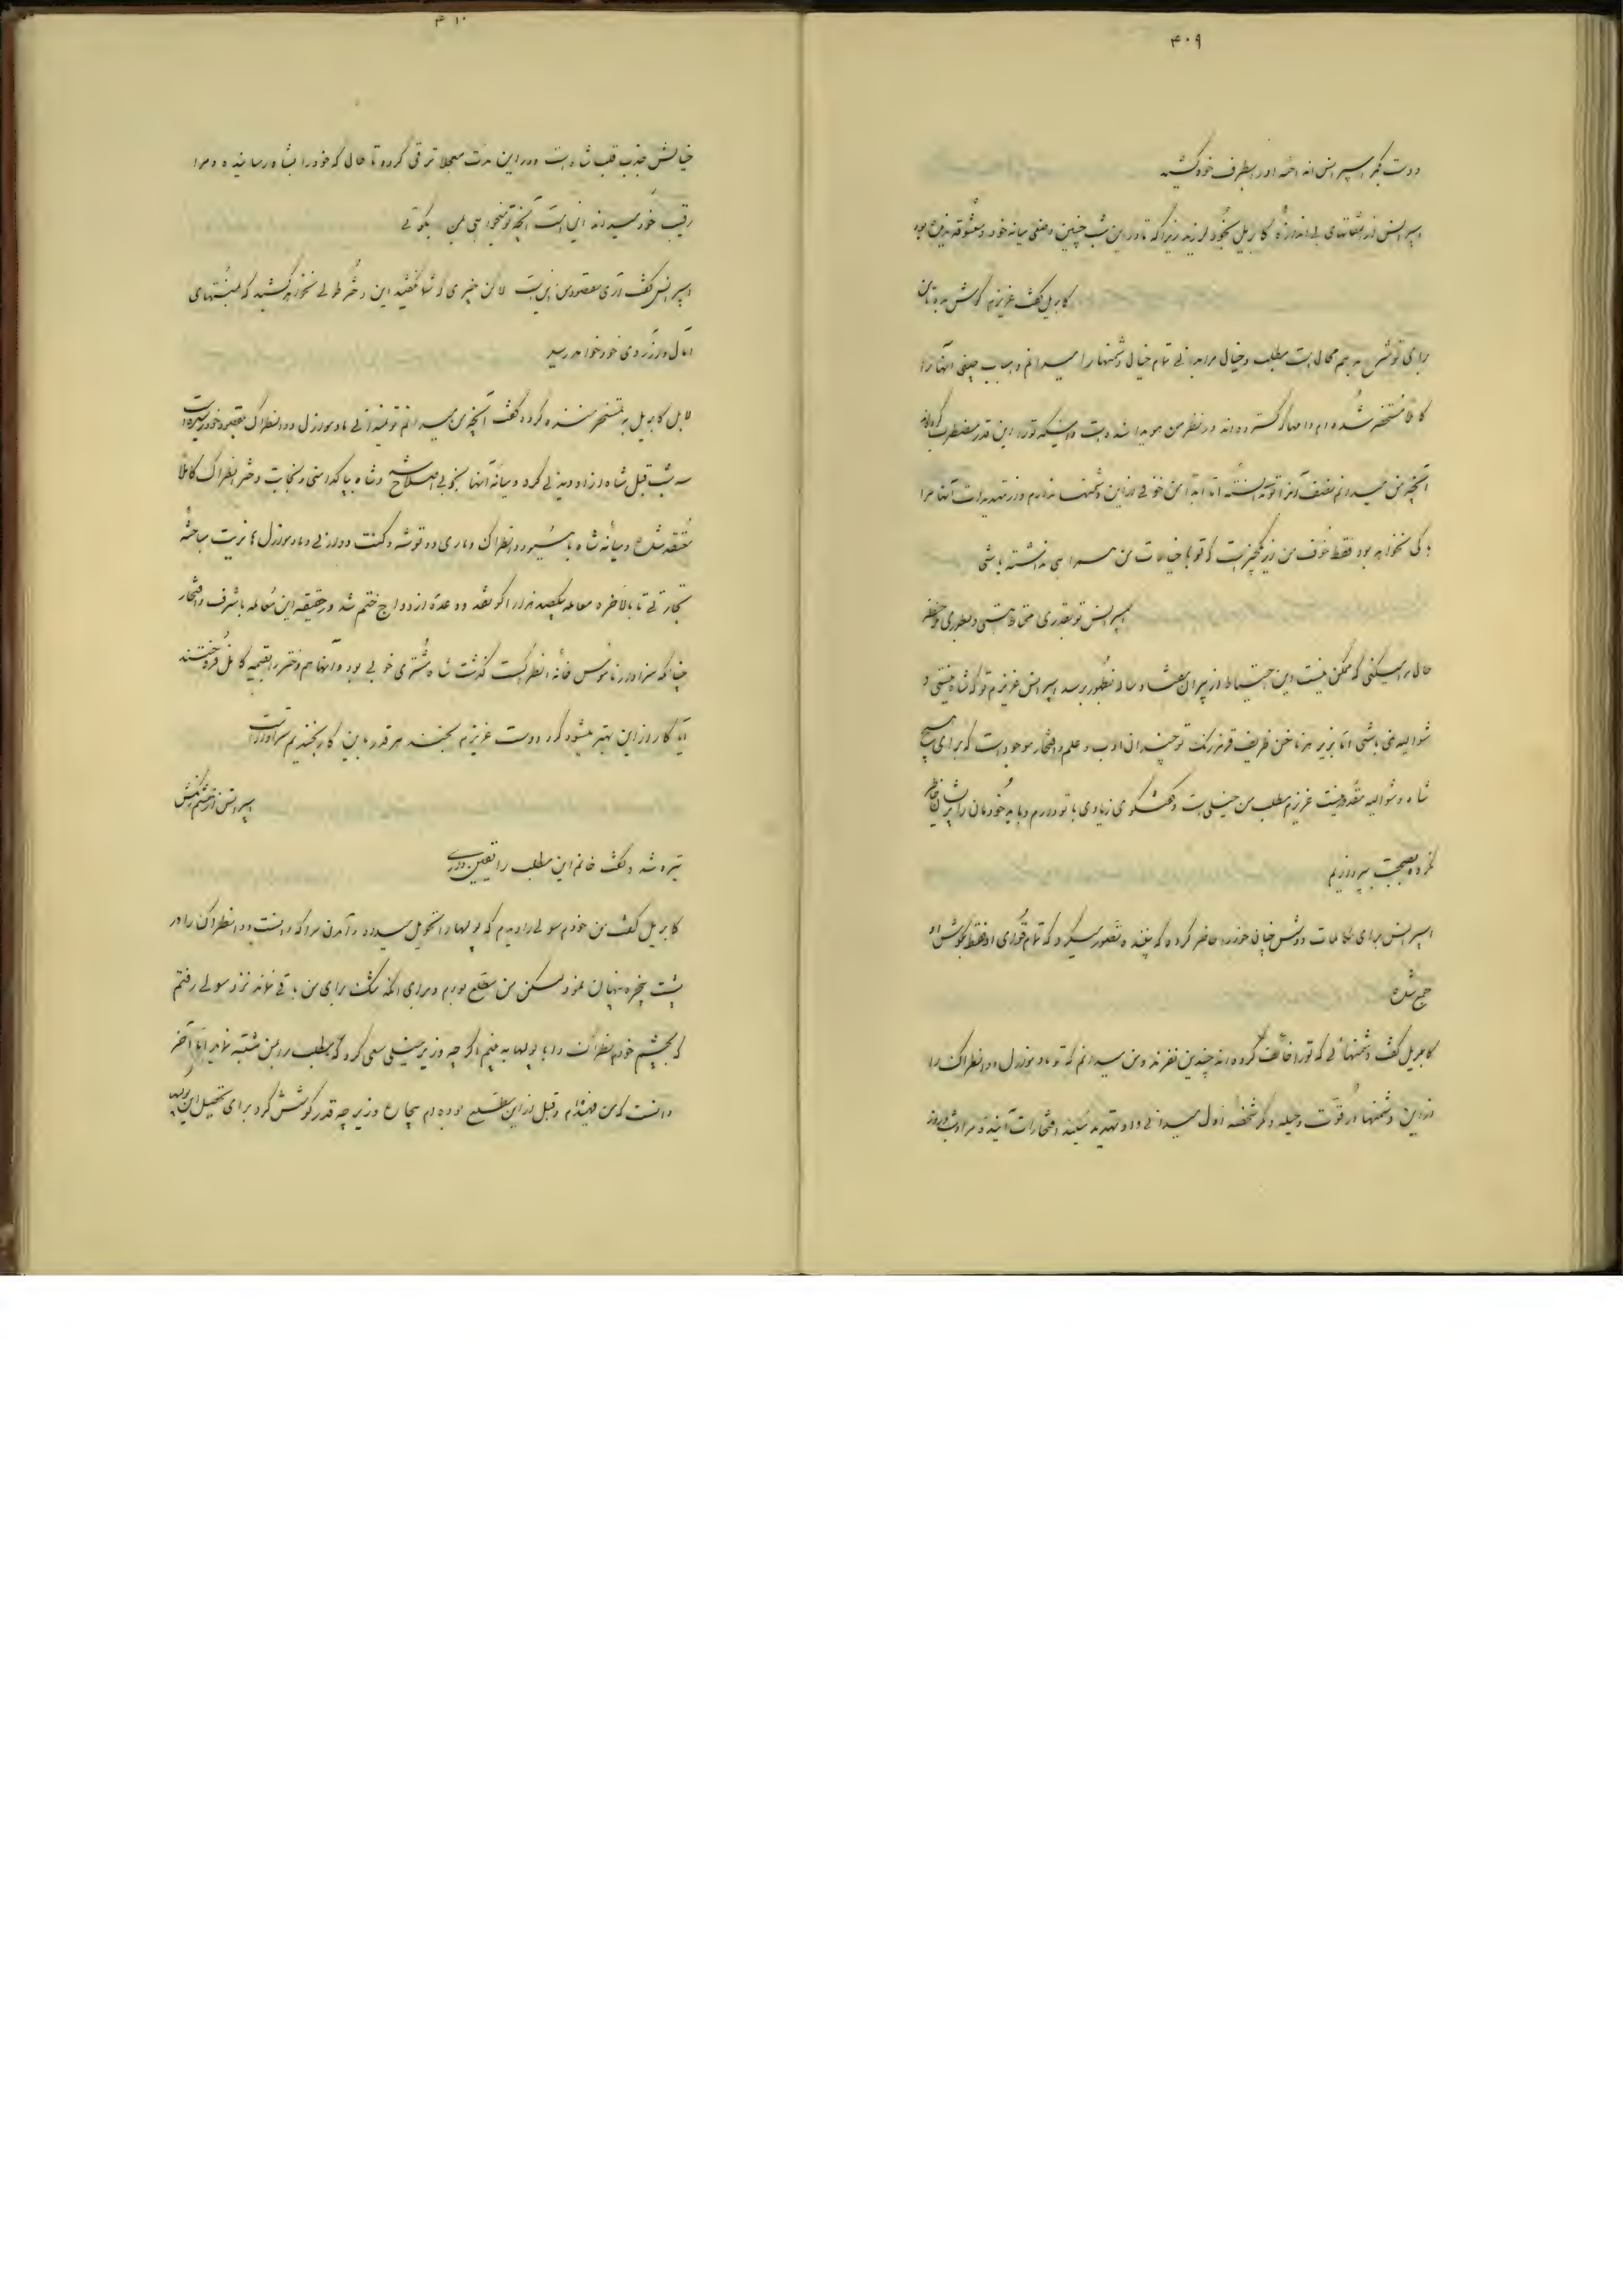 ۴۰۹
دست بکمر اسپرانس انداخته او را بطرف خود کشید
اسپرانس از التفاتهای بی اندازه کابریل بخود لرزید زیرا که تا در این شب چنین وضعی میانه خود و معشوقه ندیده بود
کابریل گفت عزیزم گوش بده تا من
برای تو شرح بدهم محال است مطلب و خیال مرا بدانی تمام خیال دشمنها را میدانم و اسباب چینی آنها را
کاملا مستحضر شده ام دامهای گسترده اند در نظر من هویدا شده است و اینکه تو را این قدر مضطرب کرده اند
آنچه من میدانم نصف آنرا تو ندانسته اما ابدا من خوفی از این دشمنها ندارم و از تهدیدات آنها مرا
باکی نخواهد بود فقط خوف من از یکچیز است که تو با خیالات من همراهی نداشته باشی
اسپرانس تو بقدری محتاط هستی و بطوری حفظ
حال مرا میکنی که ممکن نیست این احتیاط از پیران هشتاد ساله بظهور برسد اسپرانس عزیزم تو که شاه نیستی و
شوالیه نمی باشی اما بزیر هر ناخن ظریف قرمز رنگ تو چندان ادب و علم و افتخار موجود است که برای هیچ
شاه و شوالیه مقدور نیست عزیزم مطلب من خیلی است و گفتگوی زیادی با تو دارم و باید خودمان را پریشان خاطر
نکرده بصحبت بپردازیم
اسپرانس برای مکالمات دوش چنان خود را حاضر کرده که بیننده تصور میکرد که تمام قوای او فقط بگوش او
جمع شده
کابریل گفت دشمنهائی که تو را خائف کرده اند چندین نفرند و من میدانم که تو مادموازل دانطراک را
از این دشمنها در قوت و حیله و مکر شخصه اول میدانی و او تهدید کننده افتخارات آینده مرا و شب و روز
۴۱۰
خیالش جذب قلب شاه است و در این مدت معجلا ترقی کرده تا حال که خود را بشاه رسانیده و مرا
رقیب خود میداند این است آنچه تو نمیخواهی بمن بگوئی
اسپرانس گفت آری مقصود من این است لاکن خبری که شما گفتید این دختر طولی نخواهد کشید که بمنتهای
آمال و آرزوی خود خواهد رسید
کابریل به تمسخر خنده کرد و گفت آنچه من میدانم تو نمیدانی مادموازل دانطراک بمقصود خود رسیده است
سه شب قبل شاه از او دیدنی کرد و میانه آنها بخوبی اصلاح و شاه بپاکدامنی و نجابت دختر انطراک کاملا
معتقد شده و میانه شاه با مسیو دانطراک و ماری دو توشه و کنت دورنی و مادموازل هانریت مباحثه
تجارتی تا بالاخره معامله بیکصد هزار اکو نقد و وعده ازدواج ختم شد در حقیقه این معامله با شرف و افتخار
چنانکه سزاوار ناموس خانه انطراک است گذشت شاه مشتری خوبی بود و آنها هم دختر را بقیمه کامل فروختند
آیا کار از این بهتر میشود که دوست عزیزم بخندد هر قدر باین کار بخندیم سزاوار است
اسپرانس از خشم رنگش
تیره شد و گفت خانم این مطلب را یقین داری
کابریل گفت من خودم سولی را دیدم که پولها را تحویل میداد و آمدن مرا که دانست دانطراک را در
پشت پنجره پنهان نمود لکن من مطلع بودم و برای آنکه شک برای من باقی نماند نزد سولی رفتم
که بچشم خودم انطراک را با پولها به بینم اگر چه وزیر خیلی سعی کرد که مطلب را بمن مشتبه نماید اما آخر
دانست که من فهمیده ام و قبل از این مطلع بوده ام بیچاره وزیر چه قدر کوشش کرد برای تحصیل این پول